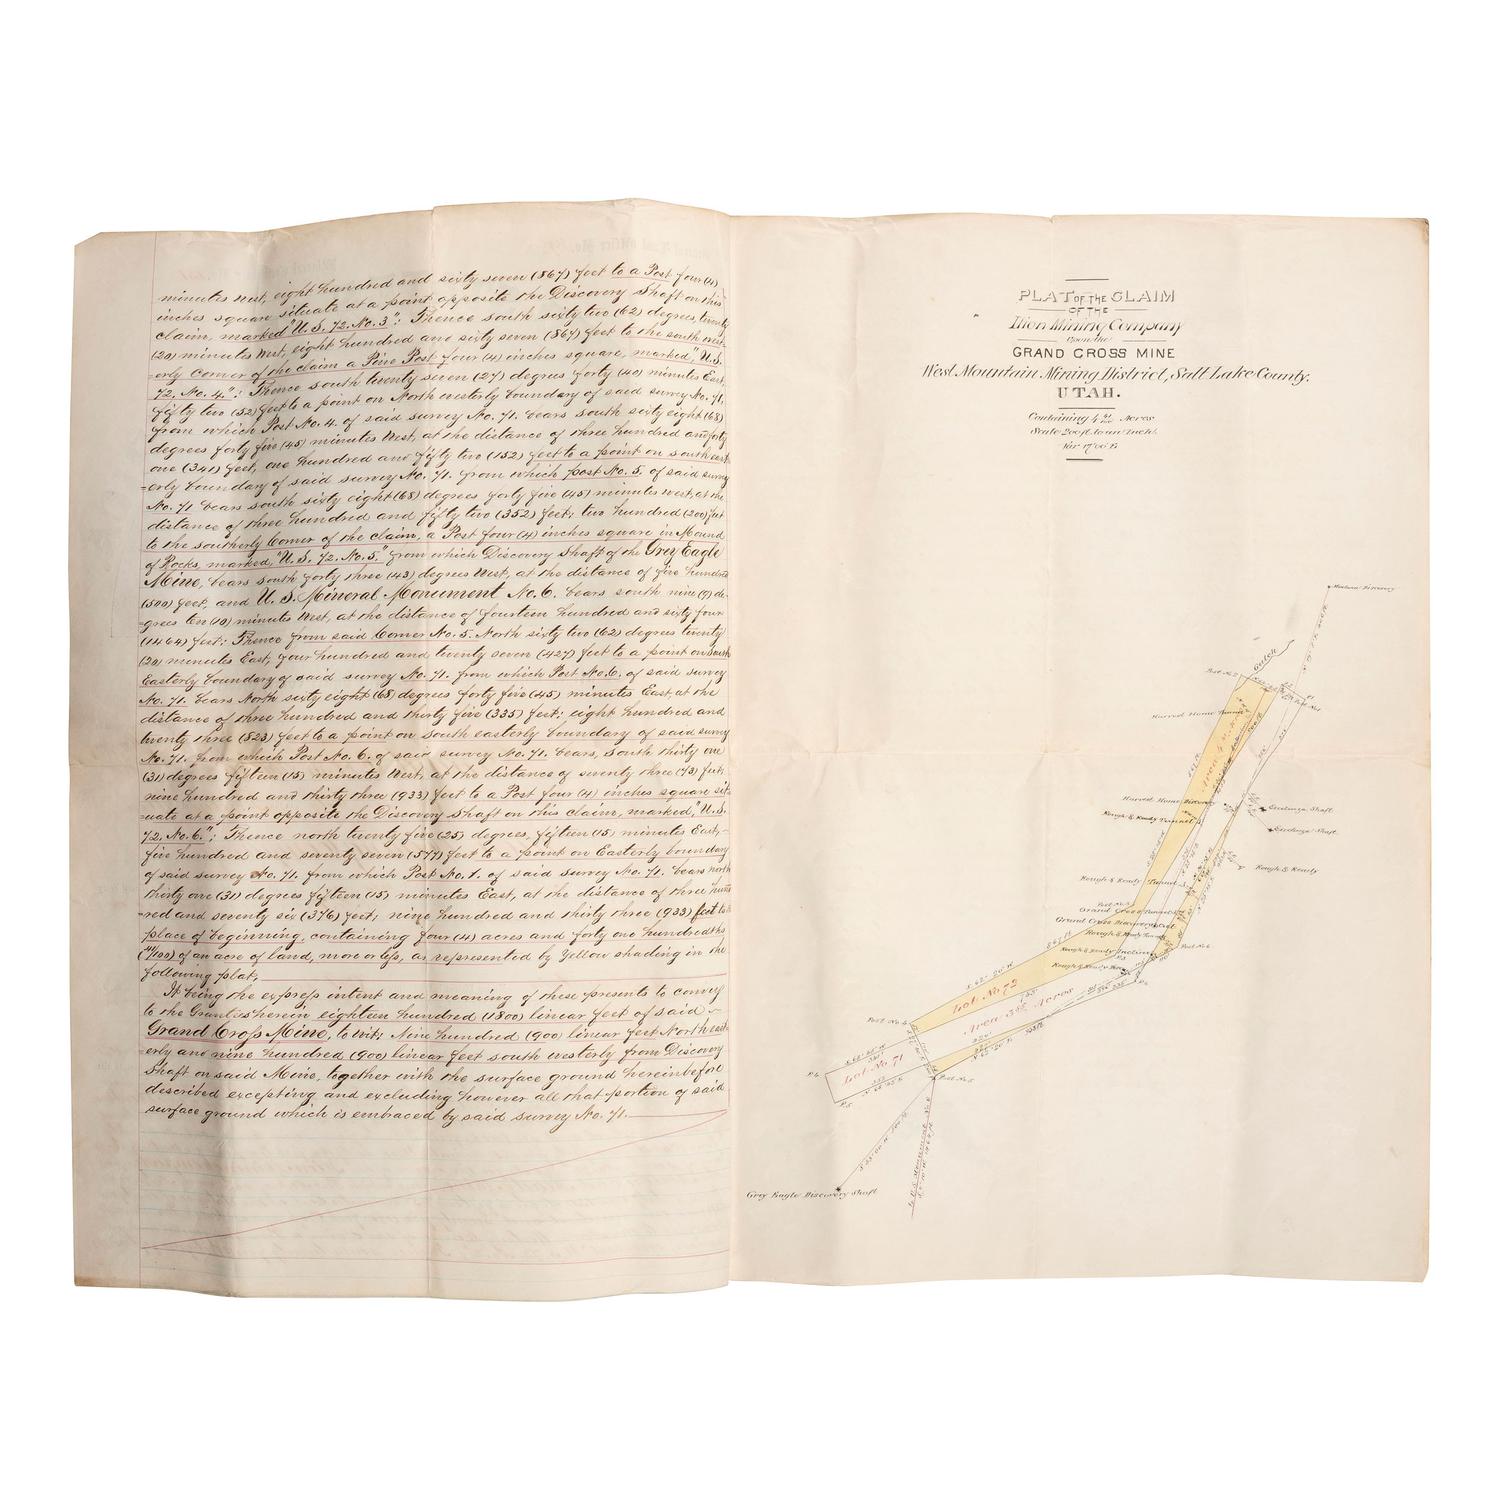 minutes West, eight hundred and sixty seven (867) feet to a Post four (4)
inches square situate at a point opposite the Discovery Shaft on this
claim, marked "U. S. 72. No. 3": Thence south sixty two (62) degrees, twenty
(20) minutes West, eight hundred and sixty seven (867) feet to the south west-
=erly Corner of the claim a Pine Post four (4) inches square, marked, "U. S.
72. No. 4.": Thence south twenty seven (27) degrees forty (40) minutes East,
fifty two (52) feet to a point on North westerly boundary of said survey No. 71,
from which Post No. 4. of said survey No. 71. bears south sixty eight (68)
degrees forty five (45) minutes West, at the distance of three hundred and forty
one (341) feet, one hundred and fifty two (152) feet to a point on south east-
=erly boundary of said survey No. 71. from which post No. 5. of said survey
No. 71 bears south sixty eight (68) degrees forty five (45) minutes west, at the
distance of three hundred and fifty two (352) feet; two hundred (200) feet
to the southerly Corner of the claim, a Post four (4) inches square in Mound
of Rocks, marked, "U. S. 72. No. 5." from which Discovery Shaft of the Grey Eagle
Mine, bears south forty three (43) degrees West, at the distance of five hundred
(500) feet, and U. S. Mineral Monument No. 6. bears south nine (9) de-
=grees ten (10) minutes West, at the distance of fourteen hundred and sixty four
(1464) feet: Thence from said Corner No. 5. North sixty two (62) degrees twenty
(20) minutes East, four hundred and twenty seven (427) feet to a point on South
Easterly boundary of said survey No. 71. from which Post No. 6. of said survey
No. 71. bears North sixty eight (68) degrees forty five (45) minutes East at the
distance of three hundred and thirty five (335) feet: eight hundred and
twenty three (823) feet to a point on south easterly boundary of said survey
No. 71. from which Post No. 6. of said survey No. 71. bears, South thirty one
(31) degrees fifteen (15) minutes West, at the distance of seventy three (73) feet;
nine hundred and thirty three (933) feet to a Post four (4) inches square sit-
=uate at a point opposite the Discovery Shaft on this claim, marked, "U. S.
72. No. 6.": Thence north twenty five (25) degrees, fifteen (15) minutes East,-
five hundred and seventy seven (577) feet to a point on Easterly boundary
of said survey No. 71. from which Post No. 1. of said survey No. 71. bears north
thirty one (31) degrees fifteen (15) minutes East, at the distance of three hund-
=red and seventy six (376) feet; nine hundred and thirty three (933) feet to
place of beginning, containing four (4) acres and forty one hundredths
(41/100) of an acre of land, more or less, as represented by Yellow shading in the
following plat,
It being the express intent and meaning of these presents to convey
to the Grantees herein eighteen hundred (1800) linear feet of said
Grand Cross Mine, to wit: Nine hundred (900) linear feet North east-
erly and nine hundred (900) linear feet south westerly from Discovery
Shaft on said Mine, together with the surface ground hereinbefore
described excepting and excluding however all that portion of said
surface ground which is embraced by said survey No. 71.
PLAT OF THE CLAIM
OF THE
Ilion Mining Company
Upon the
GRAND CROSS MINE
West Mountain Mining District, Salt Lake County.
UTAH.
Containing 4 41/100 Acres
Scale 200 ft. to an Inch.
Gulch
Harvest Home Tunnel
Harvest Home Discovery
Rough & Ready Tunnel
Rough & Ready Tunnel
Rough & Ready
Grand Cross Tunnel
Grand Cross Discovery
Rough & Ready Incline
Post No. 6
867 ft
S. 62° 20' W
Lot No 72
Lot No 71
Post No. 4
P. 4
P. 5
Post No. 5
Grey Eagle Discovery Shaft